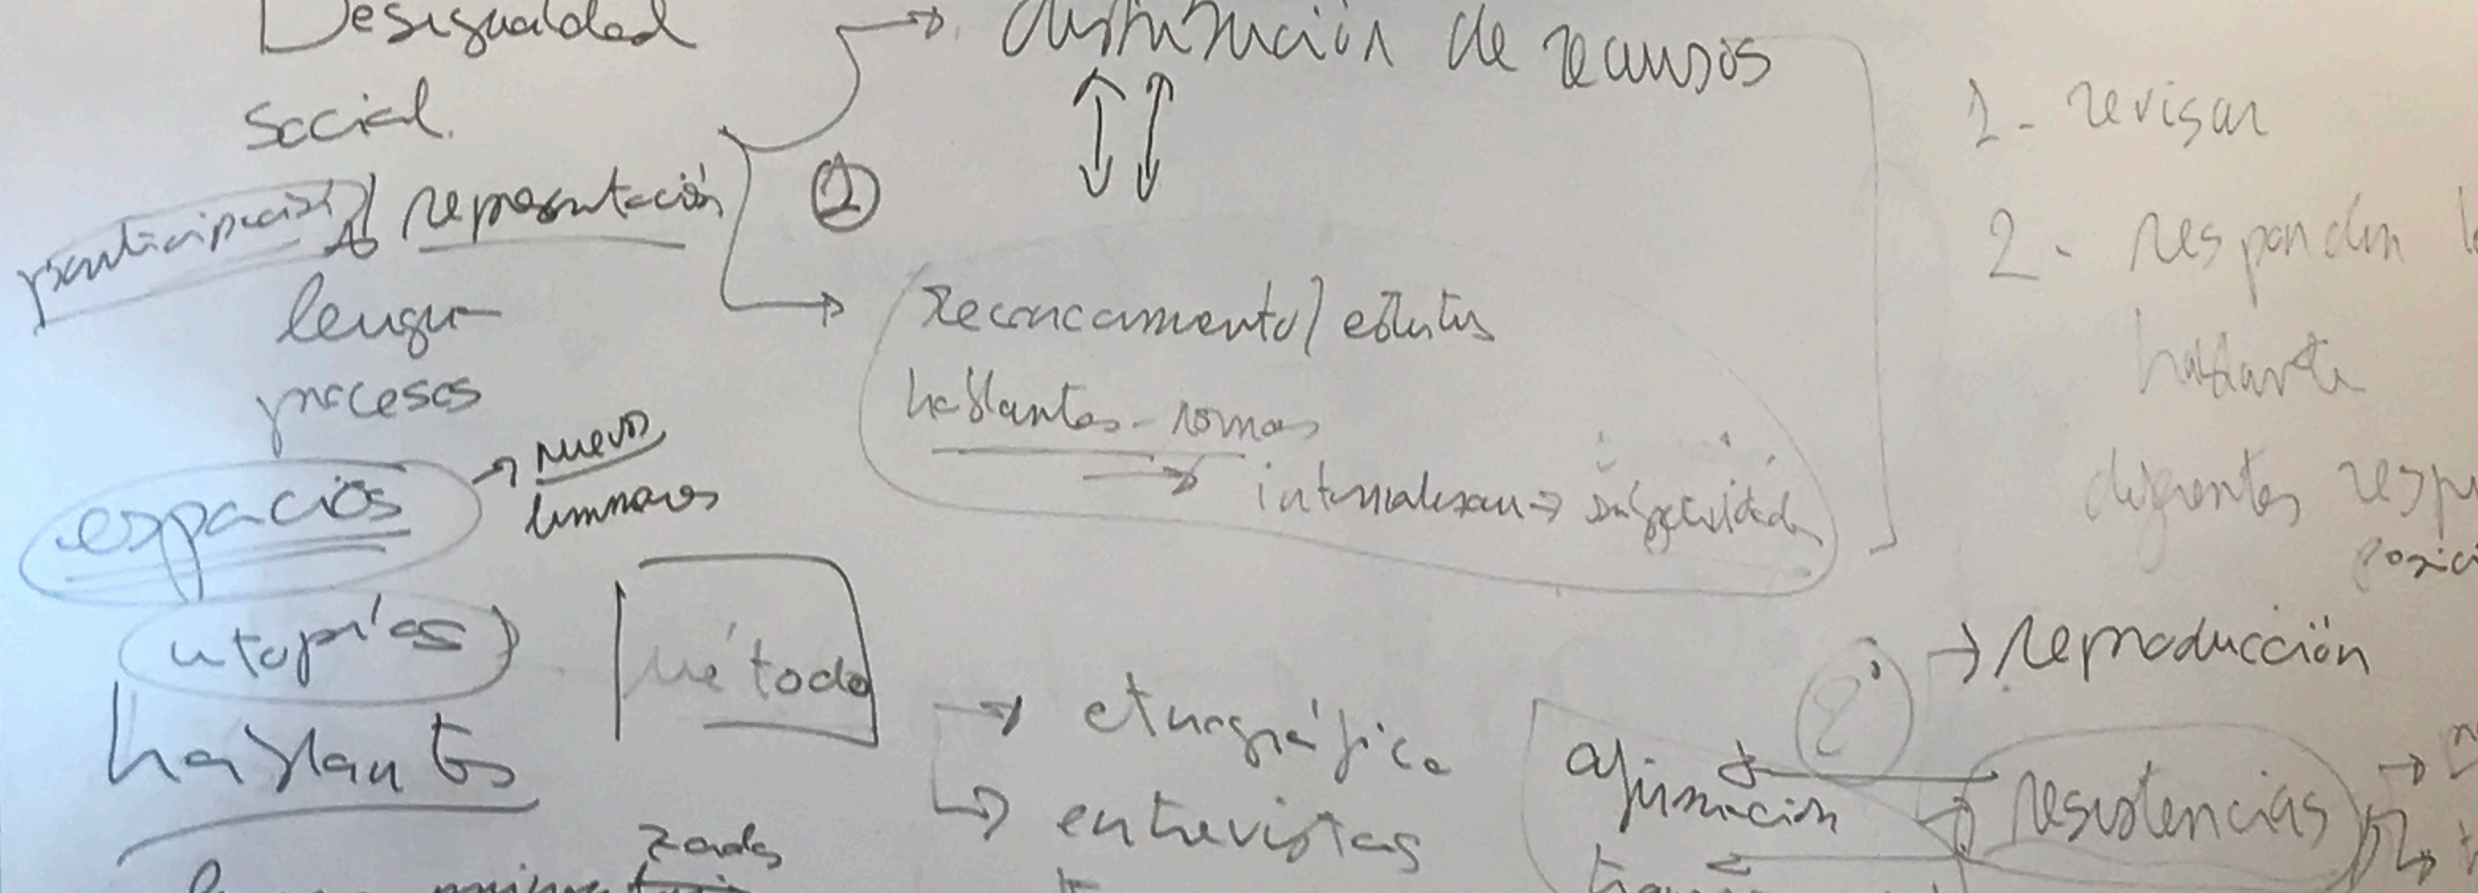 Desigualdad
social.
participación / representación
lengua
procesos
espacios
→ nuevos
liminares
utopías
hablantes
método
→ etnográfico
→ entrevistas
zadas
→ distribución de recursos
1
→ Reconocamiento / estatus
hablantes - normas
→ internalizan →
1 - revisar
2 - responden
hablante
diferentes
2
→ reproducción
resistencias
afirmación